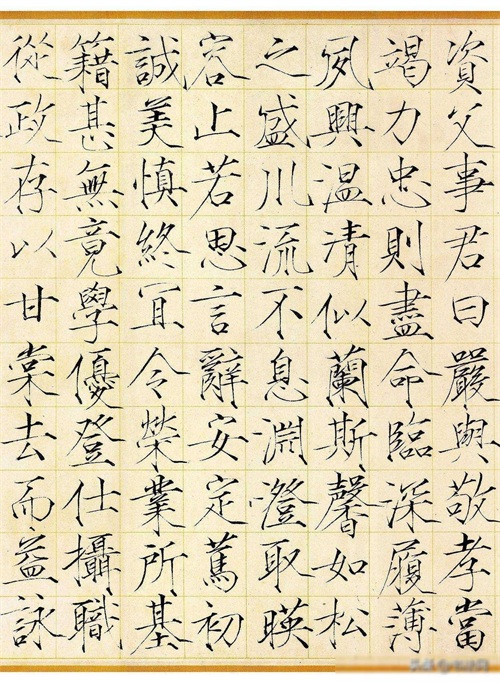 資父事君曰嚴與敬孝當
竭力忠則盡命臨深履薄
夙興温清似蘭斯馨如松
之盛川流不息淵澄取暎
容止若思言辭安定篤初
誠美慎終宜令榮業所基
籍甚無竟學優登仕攝職
從政存以甘棠去而益詠